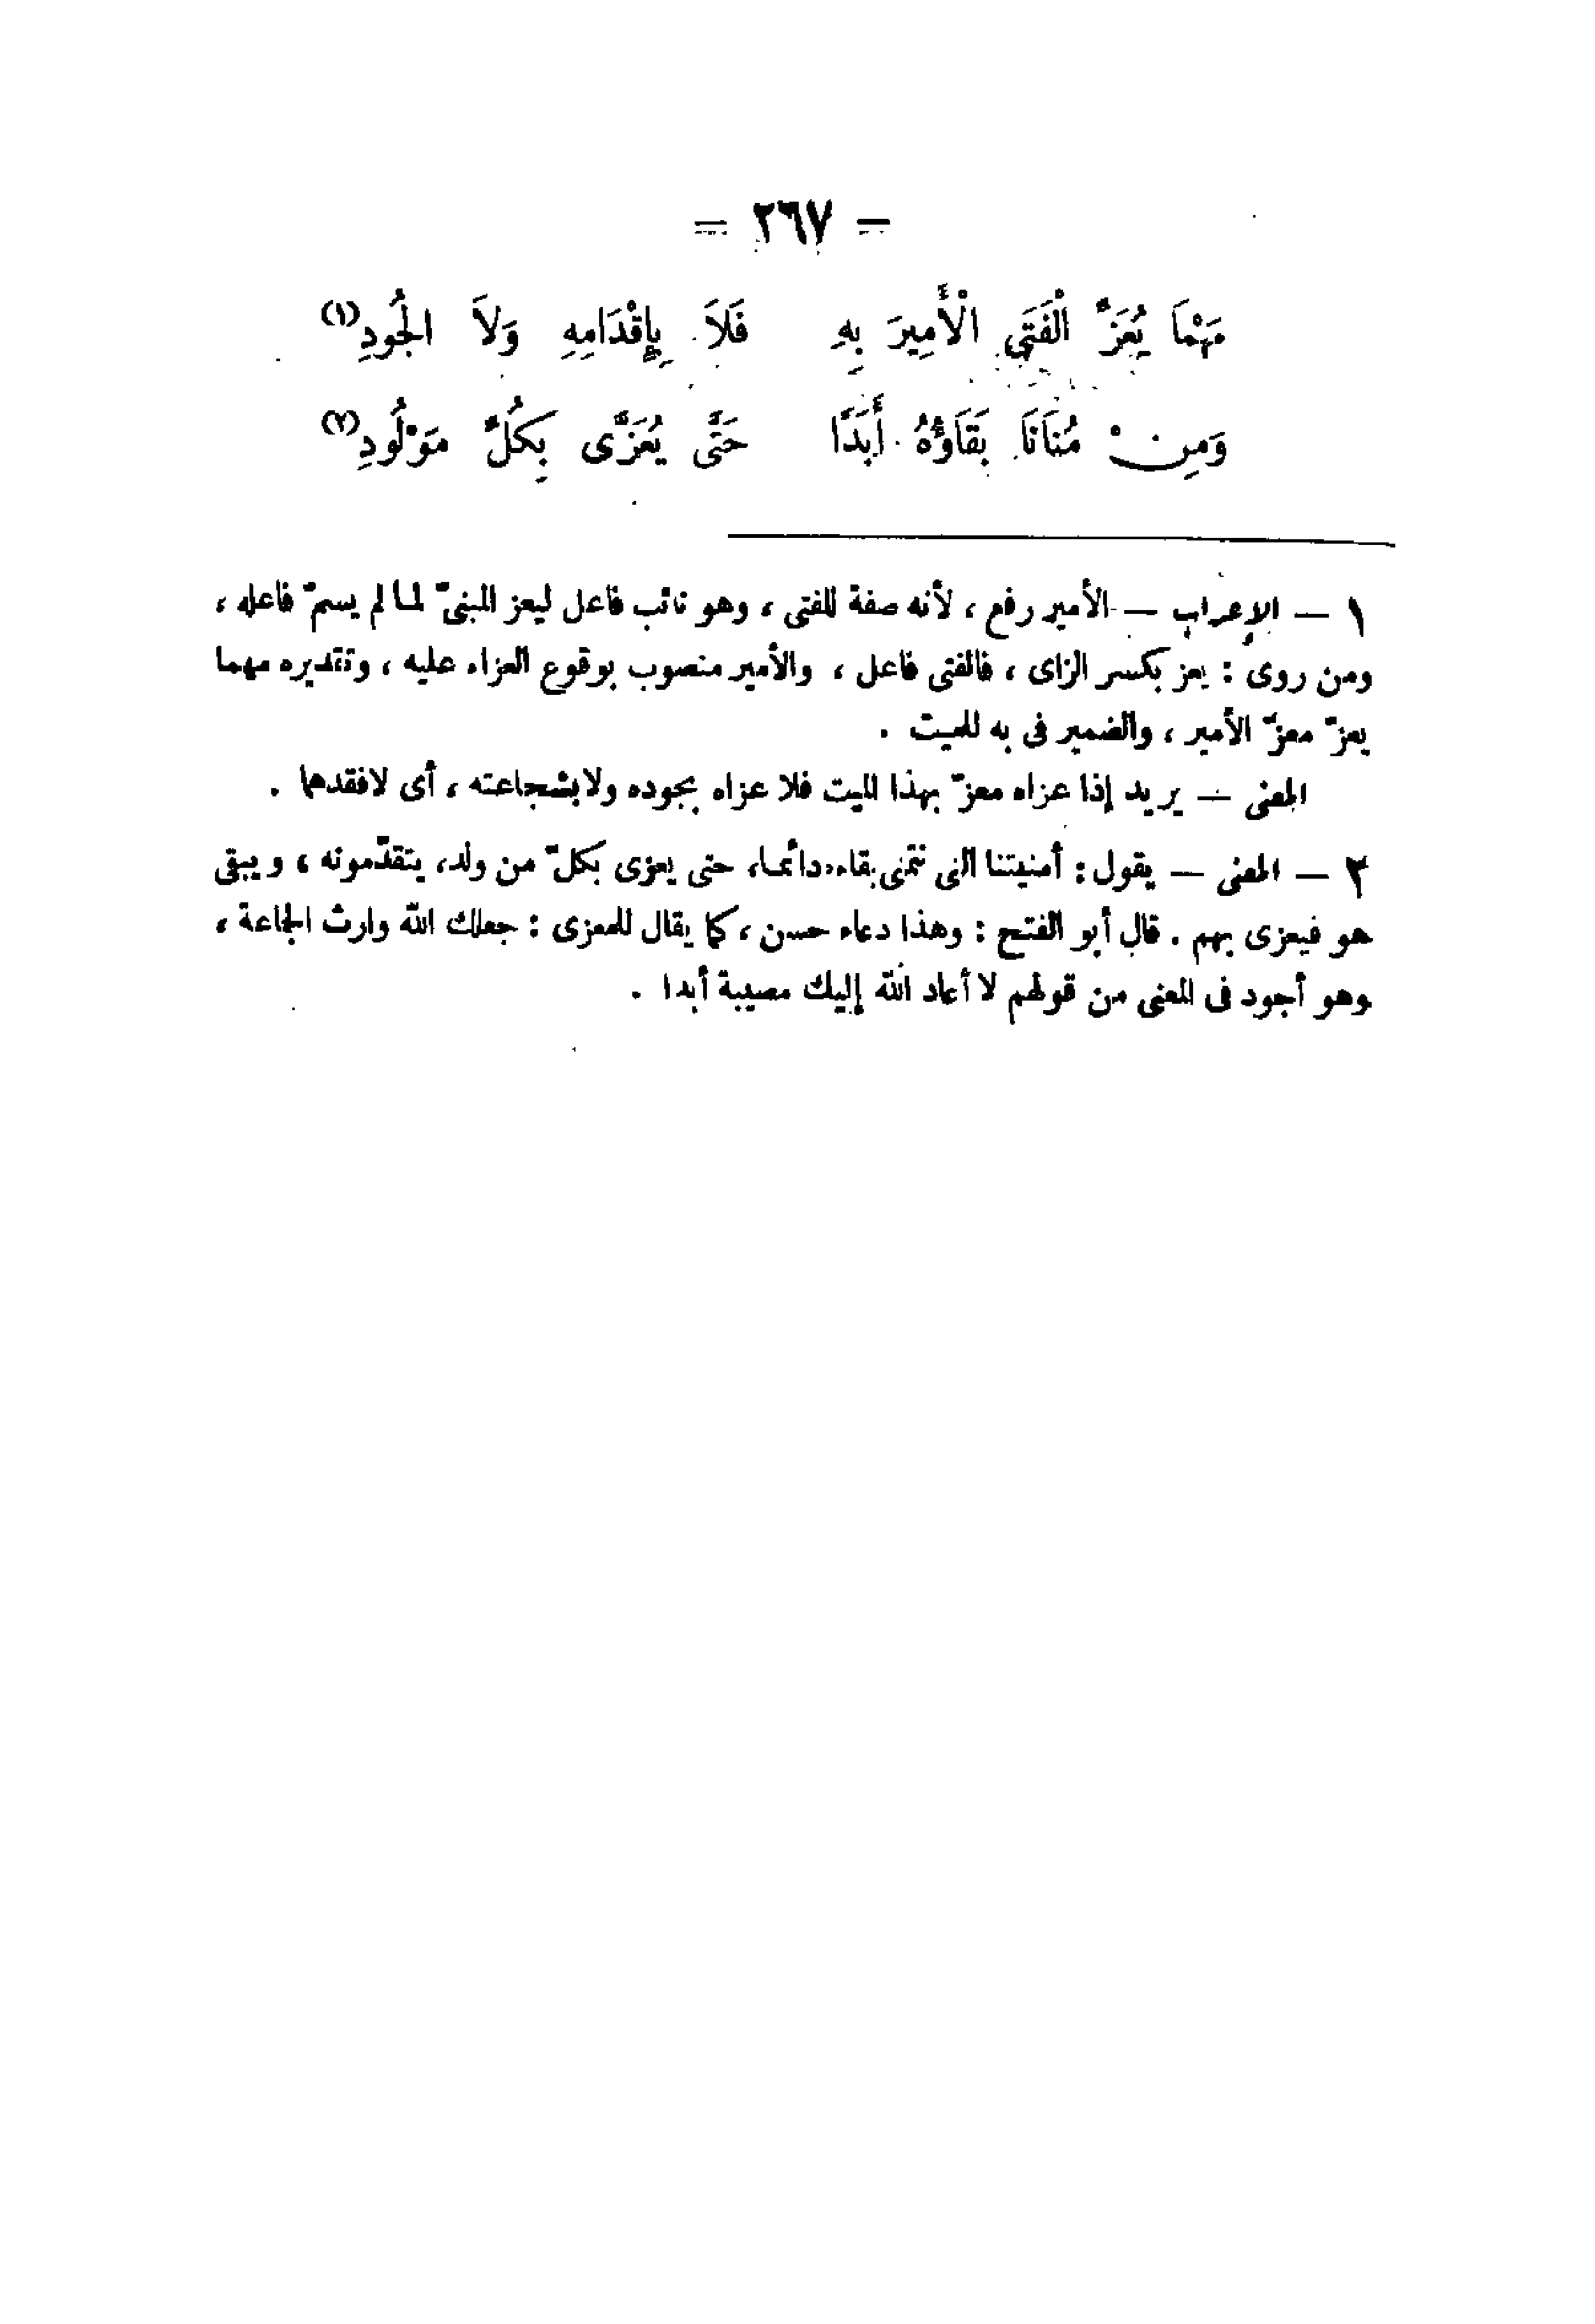 — ٢٦٧ —
مَهْمَا يُعَزَّ الْفَتَى الْأَمِيرَ بِهِ فَلَا بِإِقْدَامِهِ وَلَا الْجُودِ(١)
وَمِنْ مُنَانَا بَقَاؤُهُ أَبَدًا حَتَّى يُعَزَّى بِكُلِّ مَوْلُودِ(٢)
١ — الإعراب — الأمير رفع ، لأنه صفة للفتى ، وهو نائب فاعل ليعز المبنىّ لما لم يسمّ فاعله ،
ومن روى : يعز بكسر الزاى ، فالفتى فاعل ، والأمير منصوب بوقوع العزاء عليه ، وتقديره مهما
يعزّ معزّ الأمير ، والضمير فى به للميت .
المعنى — يريد إذا عزاه معزّ بهذا الميت فلا عزاه بجوده ولا بشجاعته ، أى لا فقدهما .
٢ — المعنى — يقول : أمنيتنا التى نتمنى بقاءه دائما ، حتى يعزى بكلّ من ولد ، يتقدّمونه ، ويبقى
هو فيعزى بهم . قال أبو الفتح : وهذا دعاء حسن ، كما يقال للمعزى : جعلك الله وارث الجماعة ،
وهو أجود فى المعنى من قولهم لا أعاد الله إليك مصيبة أبدا .